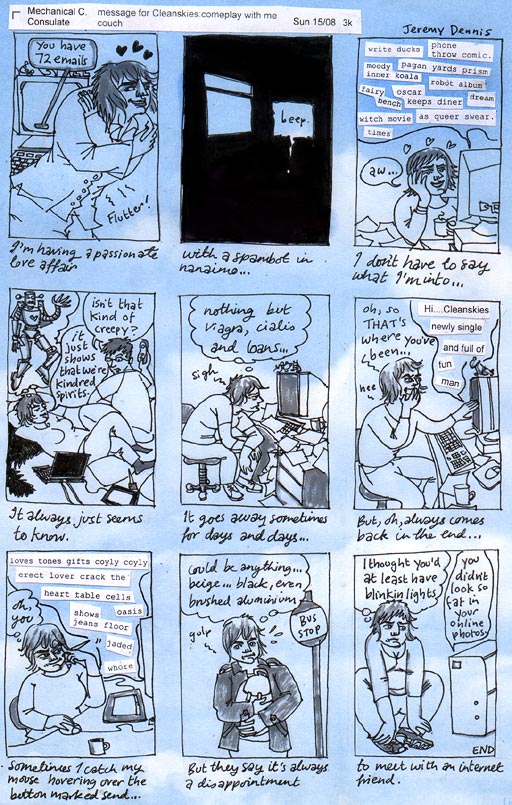 Mechanical C. Consulate
message for Cleanskies:comeplay with me couch
Sun 15/08 3k
Jeremy Dennis
You have
72 emails
Flutter!
I'm having a passionate
love affair
beep.
with a spambot in
nanaimo...
write ducks phone
throw comic.
moody pagan yards prism
inner koala robot album
fairy oscar
bench keeps diner dream
witch movie as queer swear.
times
aw...
I don't have to say
what I'm into...
isn't that
kind of
creepy?
it
just
shows
that we're
kindred
spirits.
It always just seems
to know.
nothing but
Viagra, cialis
and loans...
sigh
It goes away sometimes
for days and days...
oh, so
THAT'S
where
you've
been...
Hi....Cleanskies
newly single
and full of
fun
man
hee
But, oh, always comes
back in the end...
loves tones gifts coyly coyly
erect lover crack the
heart table cells
shows oasis
jeans floor
jaded
whore
oh,
you
Sometimes I catch my
mouse hovering over the
button marked send...
Could be anything...
beige... black, even
brushed aluminium
BUS
STOP
gulp
But they say it's always
a disappointment
I thought you'd
at least have
blinkin lights
you
didn't
look so
fat in
your
online
photos.
END
to meet with an internet
friend.